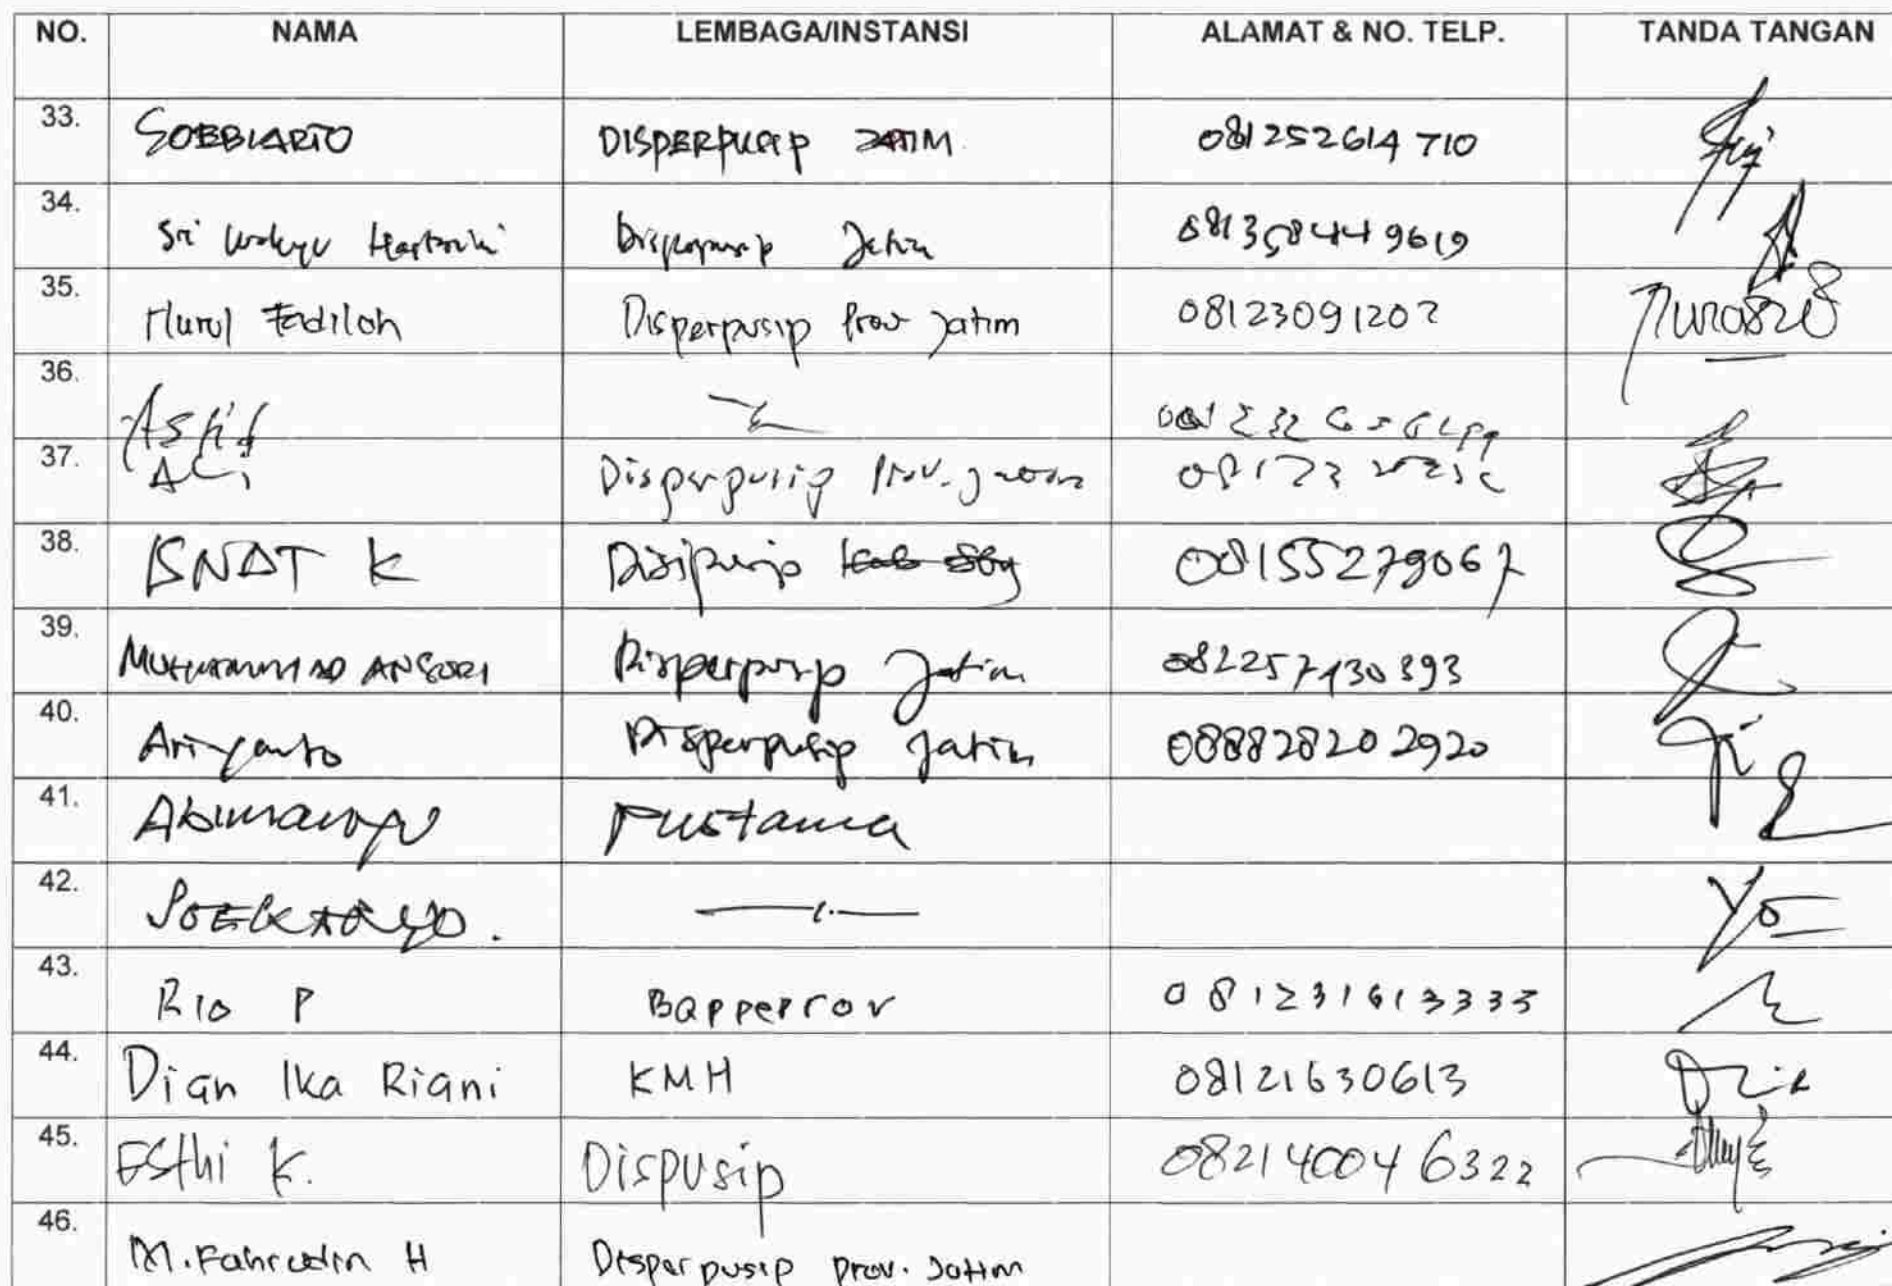 NO. NAMA LEMBAGA/INSTANSI ALAMAT & NO. TELP. TANDA TANGAN
33. SOEBIARTO DISPERPUSIP JATIM 081252614710
34. Sri Wahyu Hartarki Disperpusip Jatim
35. Nurul Fadilah Disperpusip Prov Jatim 08123091202
36.
37. Disperpusip Prov. Jatim
38. ISNAT K 08155279067
39. MUHAMMAD ANSORI Disperpusip Jatim 082257130393
40. Ariyanto Disperpusip Jatim 088828202920
41. Abimanyu Pustama
42.
43. Rio P Bapperrov 081231613333
44. Dian Ika Riani KMH 08121630613
45. Esthi K. Dispusip 082140046322
46. M. Fahrudin H Disperpusip Prov. Jatim